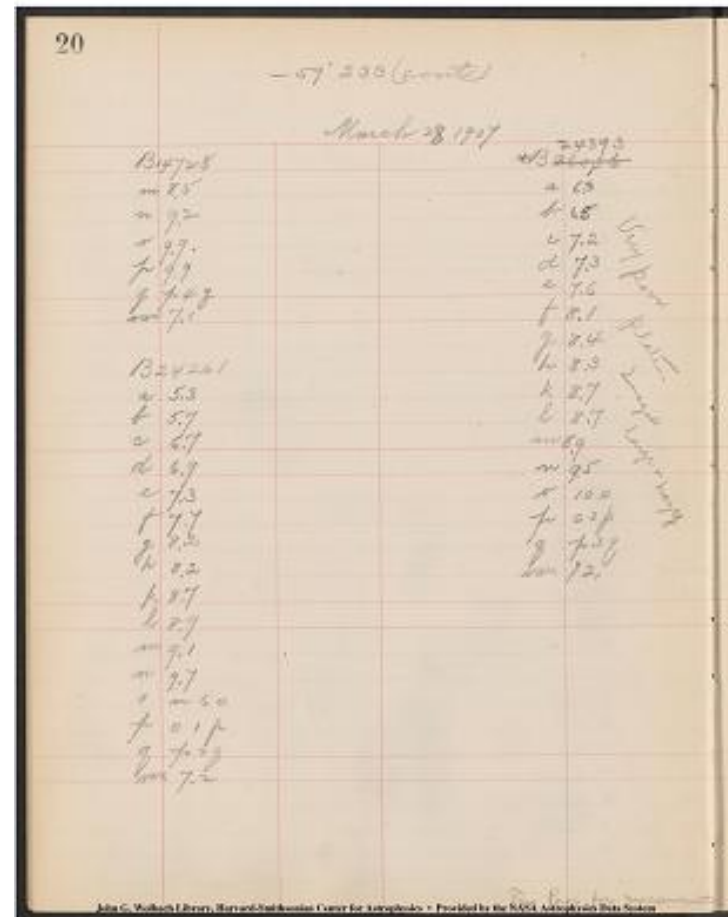 20
March 28 1907
B14725
m 8.5
n 9.2
o 9.7.
p 9.9
q p 4 q
7.1
B24261
a 5.3
b 5.7
c 6.7
d 6.9
e 7.3
f 7.7
g 8.2
h 8.2
k 8.7
l 8.9
m 9.1
n 9.7
o n 5 o
p o 1 p
q p 2 q
7.2
24393
B
a 6.3
b 6.5
c 7.2
d 7.3
e 7.6
f 8.1
g 8.4
h 8.3
k 8.7
l 8.7
m 8.9
n 9.5
o 10.0
p o 2 p
q p 3 q
7.2
Very poor
plate.
John G. Wolbach Library, Harvard-Smithsonian Center for Astrophysics • Provided by the NASA Astrophysics Data System